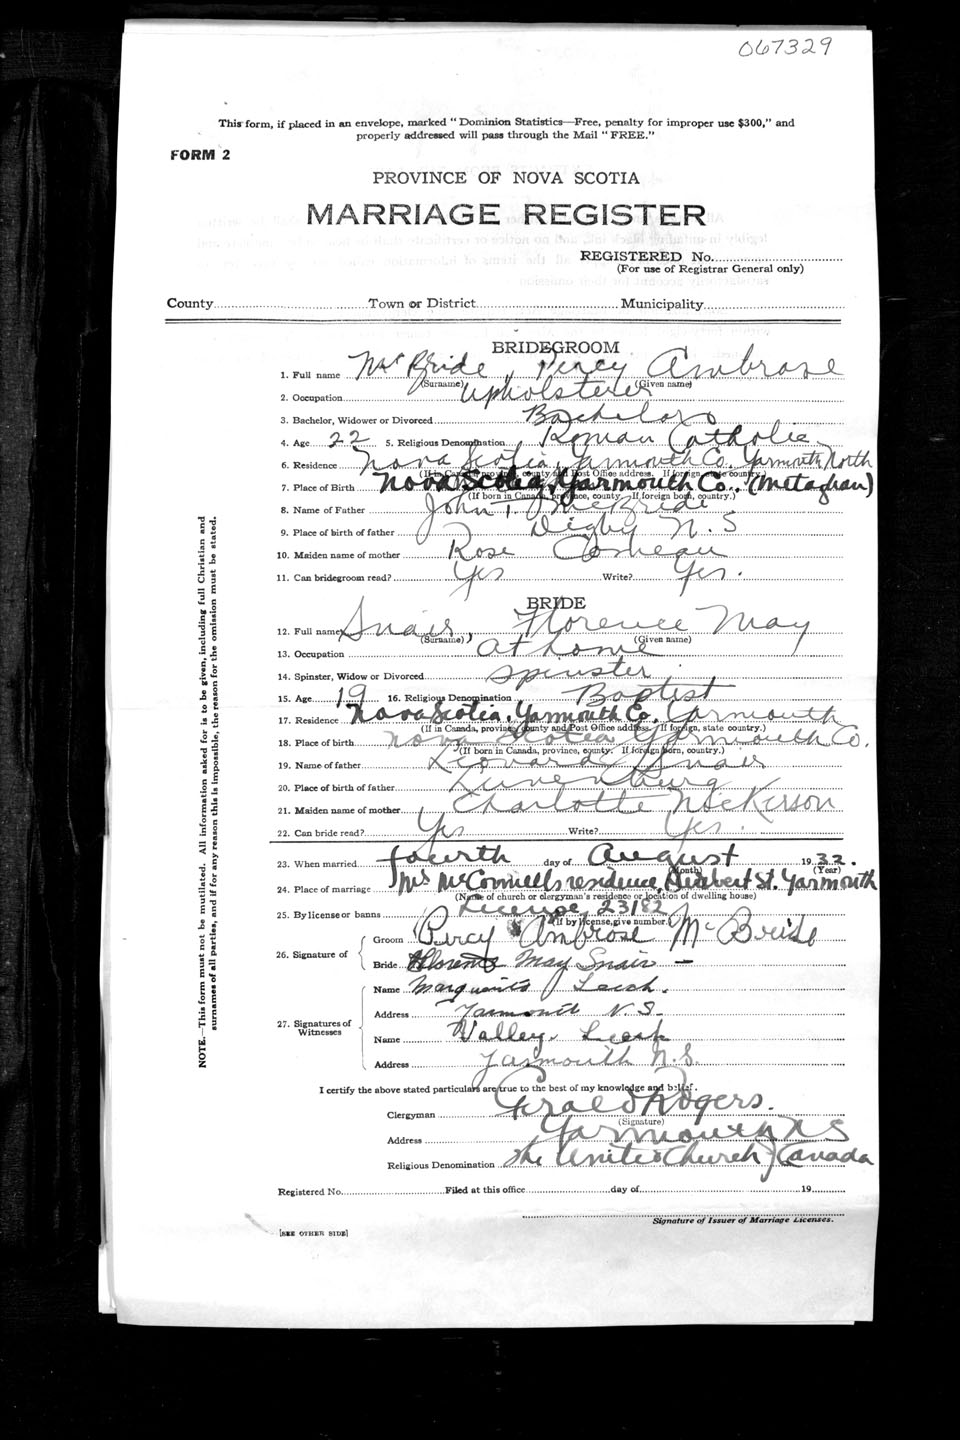 067329
This form, if placed in an envelope, marked "Dominion Statistics—Free, penalty for improper use $300," and
properly addressed will pass through the Mail "FREE."
FORM 2
PROVINCE OF NOVA SCOTIA
MARRIAGE REGISTER
REGISTERED No.
(For use of Registrar General only)
County Town or District Municipality
BRIDEGROOM
1. Full name McBride, Percy Ambrose
(Surname) (Given name)
2. Occupation Upholsterer
3. Bachelor, Widower or Divorced Bachelor
4. Age 22 5. Religious Denomination Roman Catholic
6. Residence Nova Scotia, Yarmouth Co. Yarmouth North
(If in Canada, province, county and Post Office address. If foreign, state country.)
7. Place of Birth Nova Scotia, Yarmouth Co., (Metaghan)
(If born in Canada, province, county. If foreign born, country.)
8. Name of Father John T McBride
9. Place of birth of father Digby N.S
10. Maiden name of mother Rose Comeau
11. Can bridegroom read? Yes Write? Yes.
BRIDE
12. Full name Snair, Florence May
(Surname) (Given name)
13. Occupation at home
14. Spinster, Widow or Divorced spinster
15. Age 19 16. Religious Denomination Baptist
17. Residence Nova Scotia, Yarmouth Co. Yarmouth
(If in Canada, province, county and Post Office address. If foreign, state country.)
18. Place of birth Nova Scotia Yarmouth Co.
(If born in Canada, province, county. If foreign born, country.)
19. Name of father Leonard Snair
20. Place of birth of father Lunenburg
21. Maiden name of mother Charlotte Nickerson
22. Can bride read? Yes Write? Yes.
23. When married fourth day of August 1932.
(Month) (Year)
24. Place of marriage Mrs McConnell's residence, St. Yarmouth
(Name of church or clergyman's residence or location of dwelling house)
25. By license or banns License 23182
(If by license, give number.)
26. Signature of
Groom Percy Ambrose McBride
Bride Florence May Snair
27. Signatures of Witnesses
Name Leesh.
Address Yarmouth N.S.
Name Valley.
Address Yarmouth N.S.
I certify the above stated particulars are true to the best of my knowledge and belief.
Clergyman Gerald Rogers.
(Signature)
Address Yarmouth N S
Religious Denomination The United Church of Canada
Registered No. Filed at this office day of 19
Signature of Issuer of Marriage Licenses.
[SEE OTHER SIDE]
NOTE.—This form must not be mutilated. All information asked for is to be given, including full Christian and
surnames of all parties, and if for any reason this is impossible, the reason for the omission must be stated.